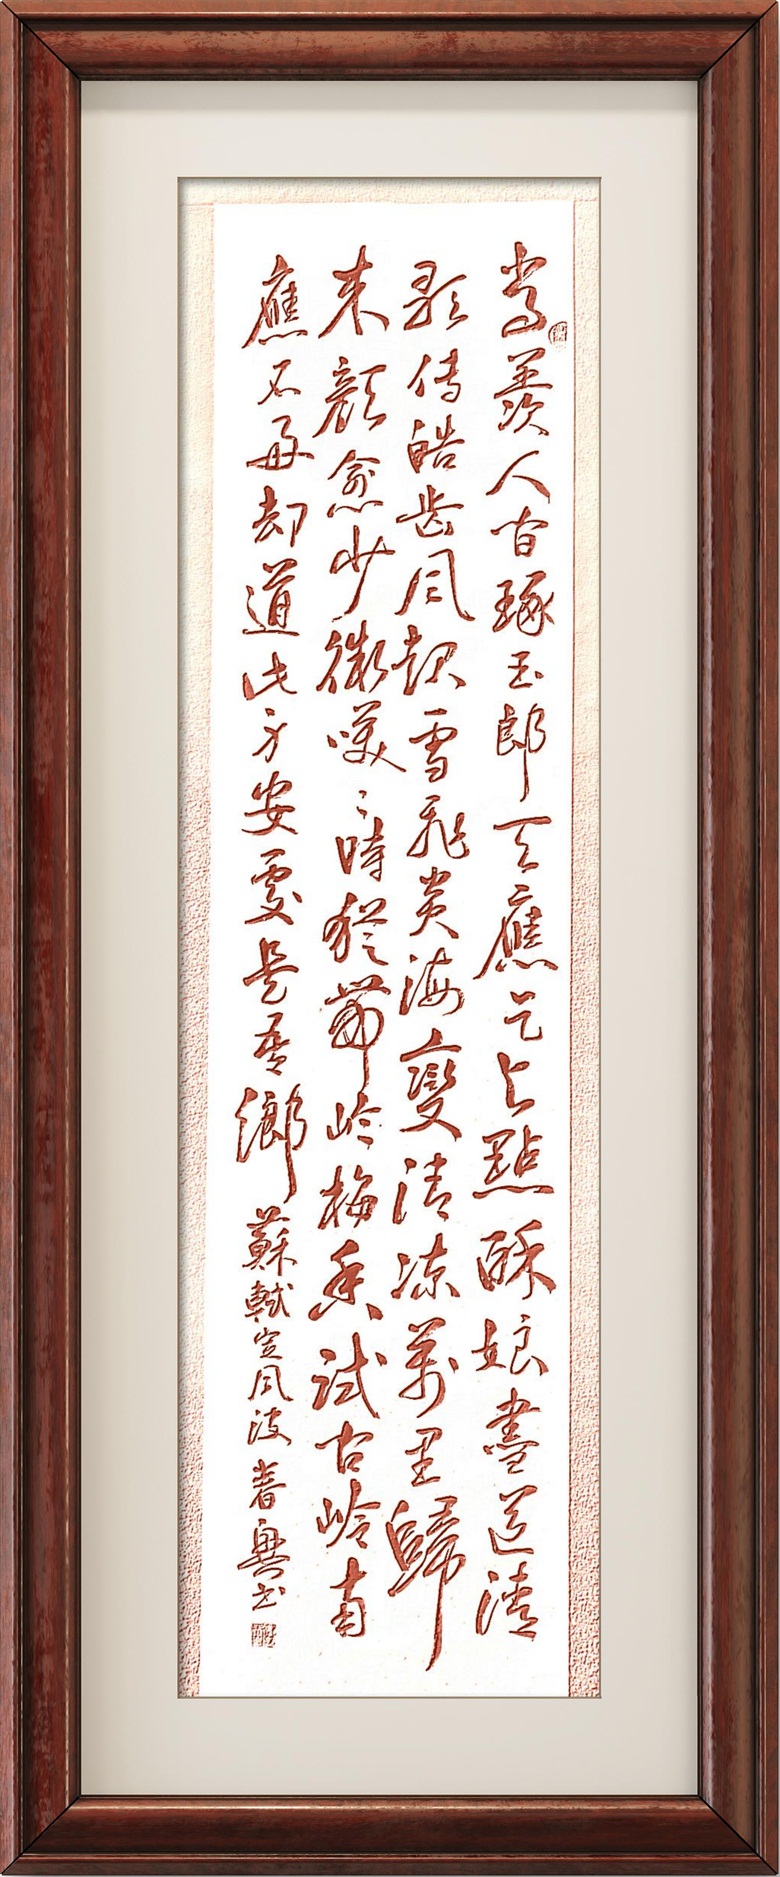 常羨人間琢玉郎天應乞与點酥娘盡道清
歌傳皓齒風起雪飛炎海變清凉萬里歸
来顏愈少微咲〻時猶帶岭梅香試問岭南
應不好却道此心安處是吾鄉 蘇軾定風波 春興书